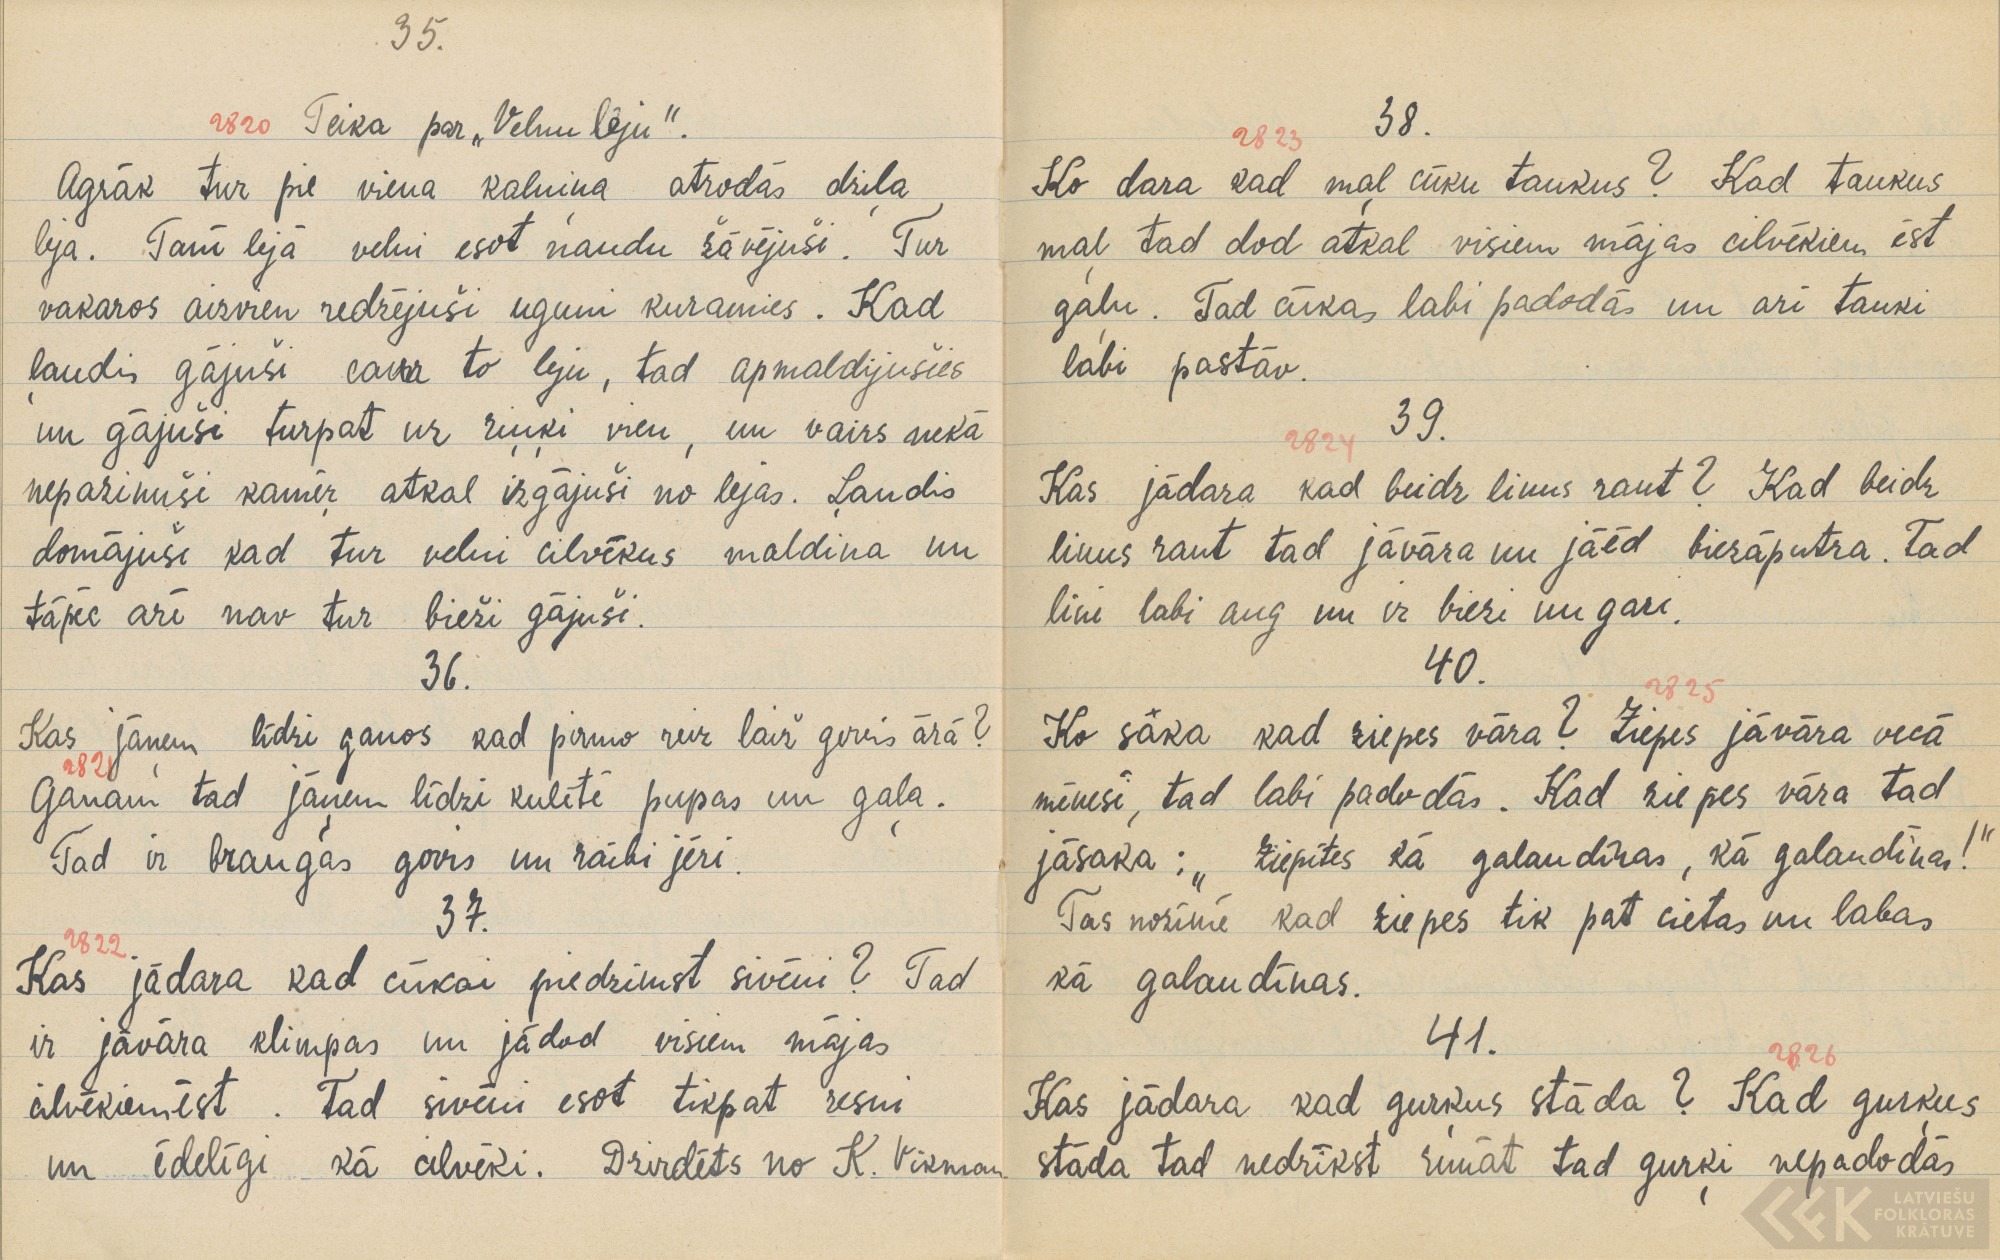 35.
2820 Teika par „Velnu lēju".
Agrāk tur pie viena kalniņa atrodās dziļa
leja. Tanī lejā velni esot naudu žāvējuši. Tur
vakaros aizvien redzējuši uguni kuramies. Kad
ļaudis gājuši caur to leju, tad apmaldijušies
un gājuši turpat uz riņķi vien, un vairs nekā
nepazinuši kamēr atkal izgājuši no lejas. Ļaudis
domājuši kad tur velni cilvēkus maldina un
tāpēc arī nav tur bieži gājuši.
36.
Kas jāņem līdzi ganos kad pirmo reiz laiž govis ārā?
2821
Ganam tad jāņem līdzi kulītē pupas un gaļa.
Tad ir braugas govis un raibi jēri.
37.
2822
Kas jādara kad cūkai piedzimst sivēni? Tad
ir jāvāra klimpas un jādod visiem mājas
cilvēkiem ēst. Tad sivēni esot tikpat resni
un ēdelīgi kā cilvēki. Dzirdēts no K. Vikman
38.
2823
Ko dara kad maļ cūku taukus? Kad taukus
maļ tad dod atkal visiem mājas cilvēkiem ēst
gaļu. Tad cūkas labi padodās un arī tauki
labi pastāv.
39.
2824
Kas jādara kad beidz linus raut? Kad beidz
linus raut tad jāvāra un jāēd biezāputra. Tad
lini labi aug un ir biezi un gari.
40.
2825
Ko sāka kad ziepes vāra? Ziepes jāvāra vecā
mēnesī, tad labi padodās. Kad ziepes vāra tad
jāsaka: „ziepītes kā galaudīnas, kā galaudīnas!"
Tas nozīmē kad ziepes tik pat cietas un labas
kā galaudīnas.
41.
2826
Kas jādara kad gurķus stāda? Kad gurķus
stāda tad nedrīkst runāt tad gurķi nepadodās
LATVIEŠU
FOLKLORAS
KRĀTUVE